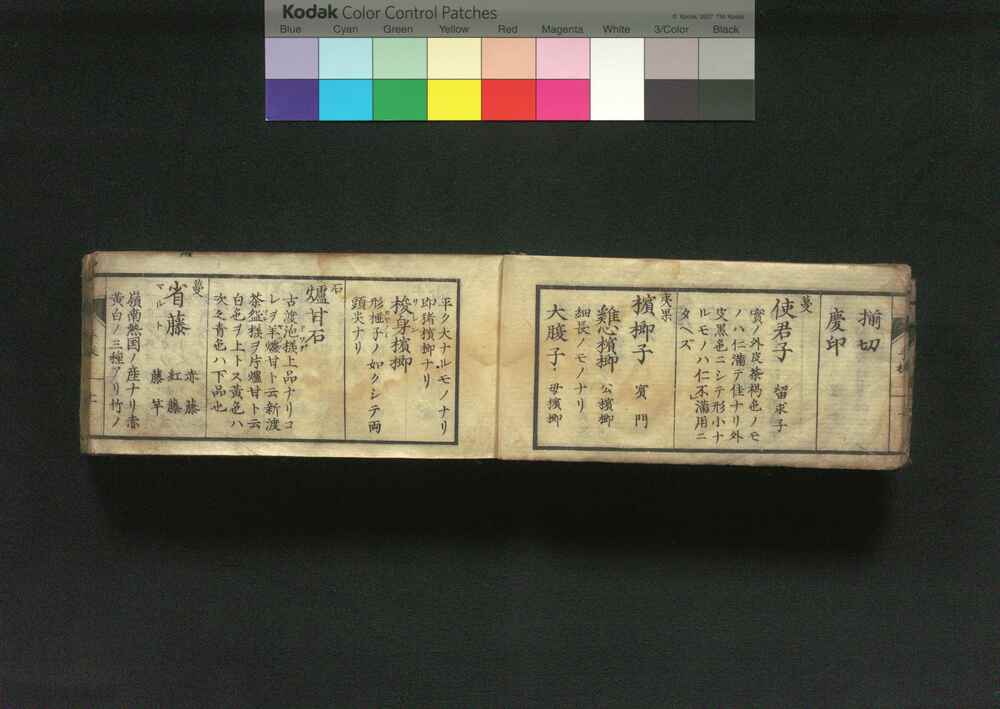 Kodak Color Control Patches
Blue Cyan Green Yellow Red Magenta White 3/Color Black
揃切
慶印
蔓
使君子 留求子
實ノ外皮茶褐色ノモ
ノハ仁満テ佳ナリ外
皮黒色ニシテ形小ナ
ルモノハ仁不満用ニ
タヘズ
夷果
檳榔子 賓門
雞心檳榔 公檳榔
細長ノモノナリ
大腹子 母檳榔
平ク大ナルモノナリ
即猪檳榔ナリ
梭身檳榔
形椎子ノ如クシテ両
頭尖ナリ
石
爐甘石
古渡池撰上品ナリコ
レヲ羊爐甘ト云新渡
茶盆撰ヲ片爐甘ト云
白色ヲ上トス黄色ハ
次之青色ハ下品也
蔓
省藤 赤藤
マルト 紅藤
藤竿
嶺南熱国ノ産ナリ赤
黄白ノ三種アリ竹ノ